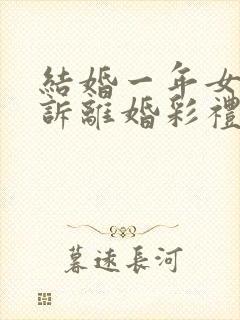 結婚一年女
訴離婚彩禮
暮遠長河